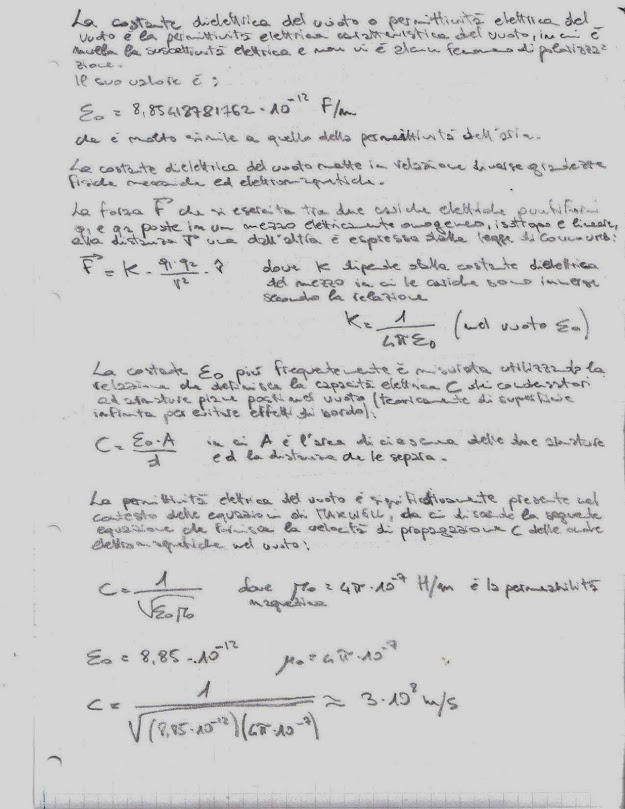 La costante dielettrica del vuoto o permittività elettrica del
vuoto è la permittività elettrica caratteristica del vuoto, in cui è
nulla la suscettività elettrica e non vi è alcun fenomeno di polarizza=
zione.
Il suo valore è:
ε₀ = 8,85418781762 · 10⁻¹² F/m
che è molto simile a quella della permettività dell'aria.
La costante dielettrica del vuoto mette in relazione diverse grandezze
fisiche meccaniche ed elettromagnetiche.
La forza F⃗ che si esercita tra due cariche elettriche puntiformi
q₁ e q₂ poste in un mezzo elettricamente omogeneo, isotropo e lineare,
alla distanza r⃗ una dall'altra è espressa dalla legge di Coulomb:
F⃗ = K · q₁·q₂/r² · r̂ dove K dipende dalla costante dielettrica
del mezzo in cui le cariche sono immerse
secondo la relazione
K = 1/4πε₀ (nel vuoto ε₀)
La costante ε₀ più frequentemente è misurata utilizzando la
relazione che definisce la capacità elettrica C di condensatori
ad armature piane posti nel vuoto (teoricamente di superficie
infinita per evitare effetti di bordo):
C = ε₀·A/d in cui A è l'area di ciascuna delle due armature
e d la distanza che le separa.
La permittività elettrica del vuoto è significativamente presente nel
contesto delle equazioni di MAXWELL, da cui discende la seguente
equazione che fornisce la velocità di propagazione C delle onde
elettromagnetiche nel vuoto:
C = 1/√ε₀μ₀ dove μ₀ = 4π·10⁻⁷ H/m è la permeabilità
magnetica
ε₀ = 8,85·10⁻¹² μ₀ = 4π·10⁻⁷
C = 1/√(8,85·10⁻¹²)(4π·10⁻⁷) ≈ 3·10⁸ m/s